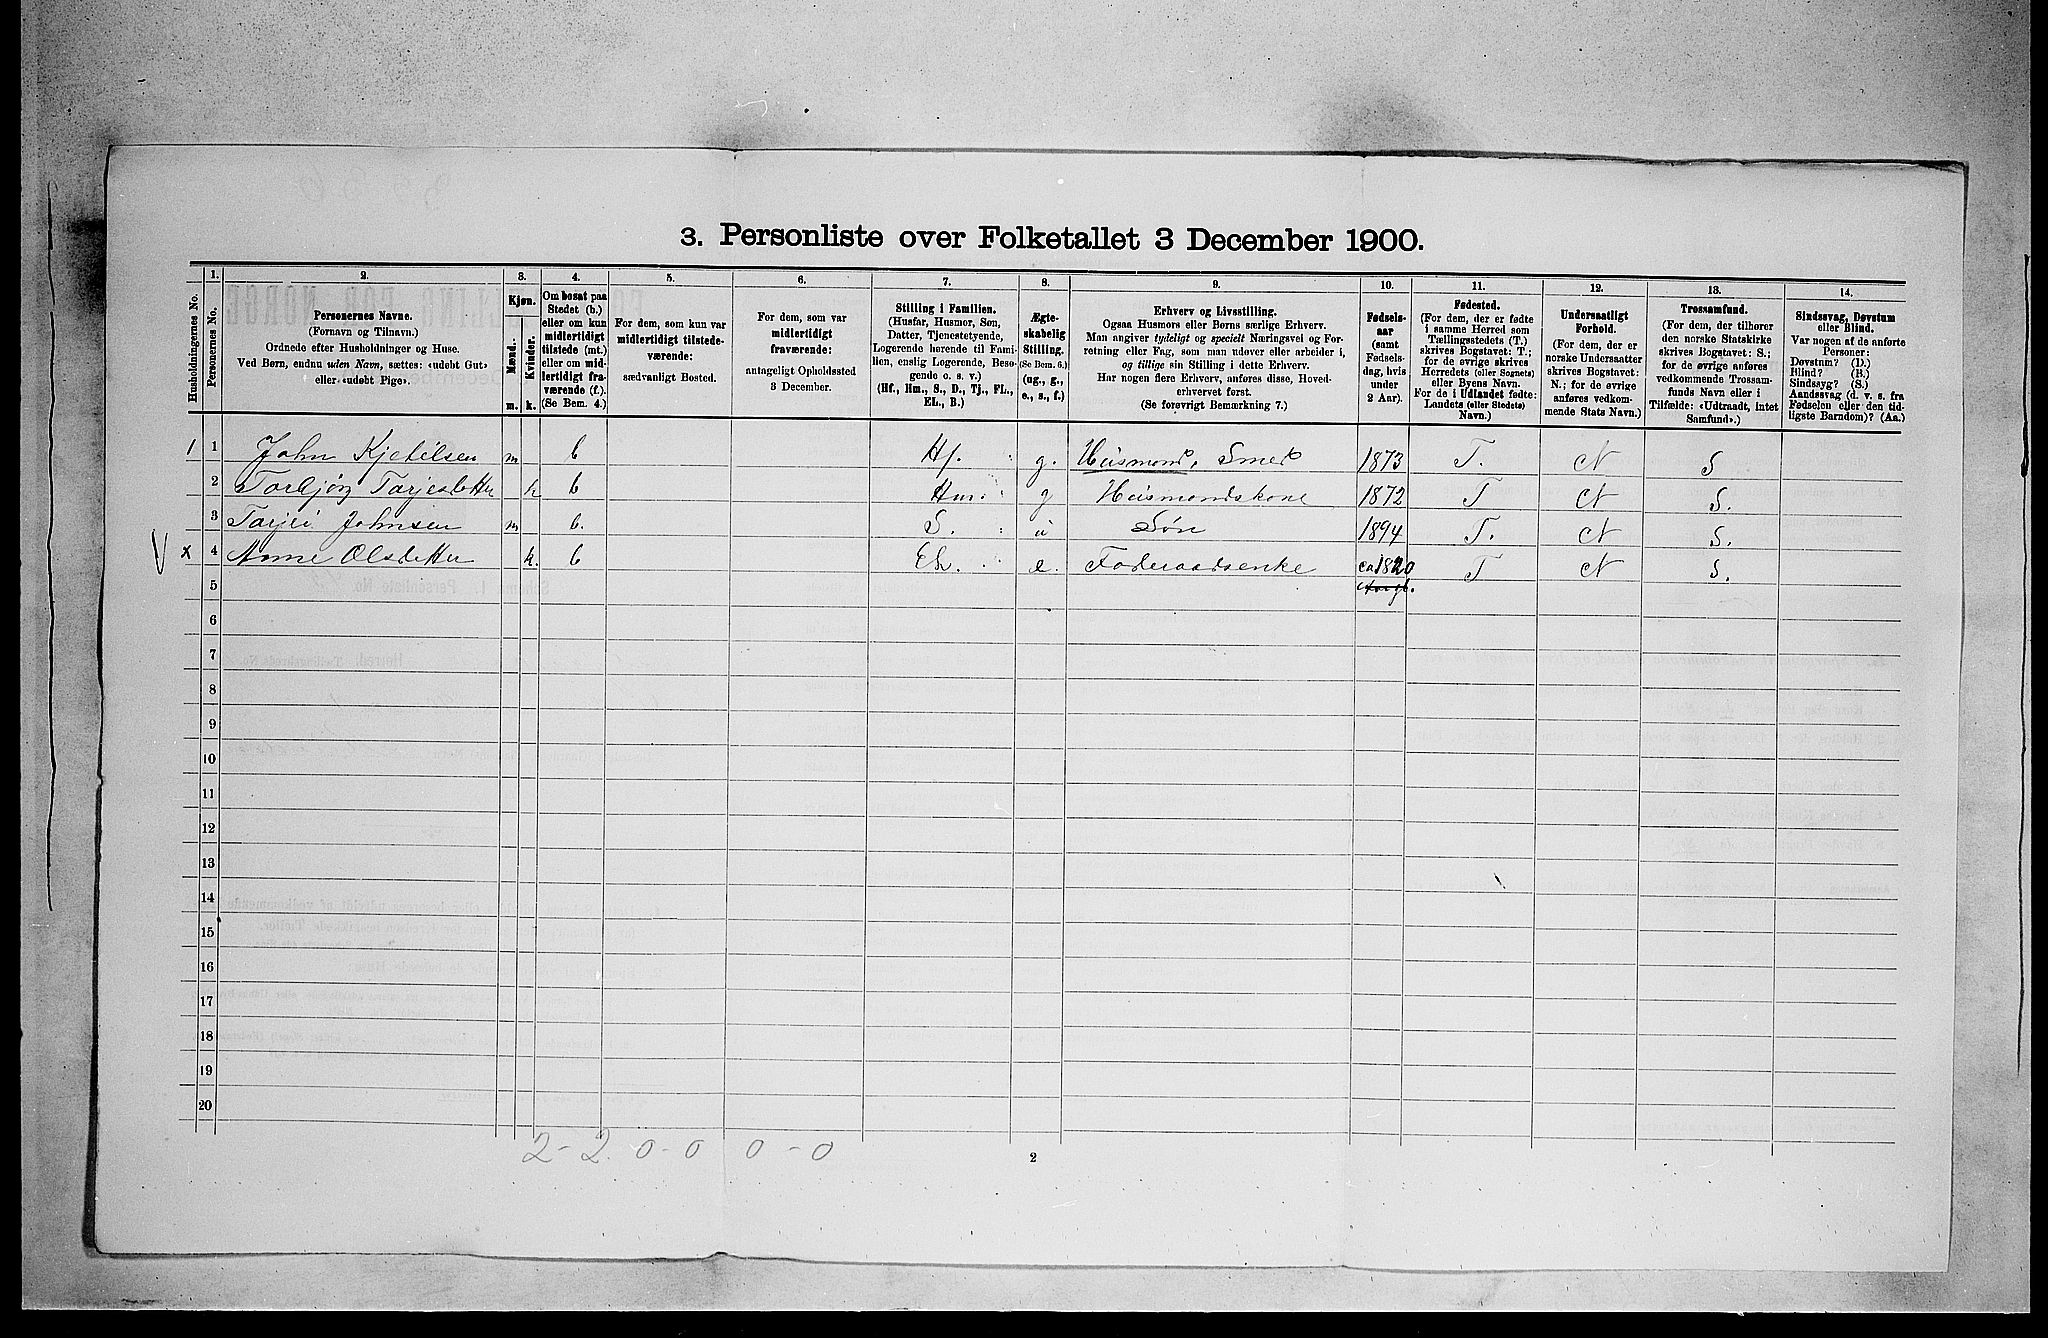 3. Personliste over Folketallet 3 December 1900.
1. 2. 3. 4. 5. 6. 7. 8. 9. 10. 11. 12. 13. 14.
Husholdningenes No.
Personernes No.
Personernes Navne.
(Fornavn og Tilnavn.)
Ordnede efter Husholdninger og Huse.
Ved Børn, endnu uden Navn, sættes: «udøbt Gut»
eller «udøbt Pige».
Kjøn.
Mænd.
Kvinder.
m. k.
Om bosat paa
Stedet (b.)
eller om kun
midlertidigt
tilstede (mt.)
eller om mid-
lertidigt fra-
værende (f.).
(Se Bem. 4.)
For dem, som kun var
midlertidigt tilstede-
værende:
sædvanligt Bosted.
For dem, som var
midlertidigt
fraværende:
antageligt Opholdssted
3 December.
Stilling i Familien.
(Husfar, Husmor, Søn,
Datter, Tjenestetyende,
Logerende hørende til Fami-
lien, enslig Logerende, Besø-
gende o. s. v.)
(Hf., Hm., S., D., Tj., FL.,
EL., B.)
Ægte-
skabelig
Stilling.
(Se Bem. 6.)
(ug., g.,
e., s., f.)
Erhverv og Livsstilling.
Ogsaa Husmors eller Børns særlige Erhverv.
Man angiver tydeligt og specielt Næringsvei og For-
retning eller Fag, som man udøver eller arbeider i,
og tillige sin Stilling i dette Erhverv.
Har nogen flere Erhverv, anføres disse, Hoved-
erhvervet først.
(Se forøvrigt Bemærkning 7.)
Fødsels-
aar
(samt
Fødsels-
dag, hvis
under
2 Aar).
Fødested.
(For dem, der er fødte
i samme Herred som
Tællingsstedets (T.)
skrives Bogstavet: T.;
for de øvrige skrives
Herredets (eller Sognets)
eller Byens Navn.
For de i Udlandet fødte:
Landets (eller Stedets)
Navn.)
Undersaatligt
Forhold.
(For dem, der er
norske Undersaatter
skrives Bogstavet:
N.; for de øvrige
anføres vedkom-
mende Stats Navn.)
Trossamfund.
(For dem, der tilhører
den norske Statskirke
skrives Bogstavet: S.;
for de øvrige anføres
vedkommende Trossam-
funds Navn eller i
Tilfælde: «Udtraadt, intet
Samfund».)
Sindssvag, Døvstum
eller Blind.
Var nogen af de anførte
Personer:
Døvstum? (D.)
Blind? (B.)
Sindssyg? (S.)
Aandssvag (d. v. s. fra
Fødselen eller den tid-
ligste Barndom)? (Aa.)
1 1 John Kjetilsen m b Hf. g. Husmand, Smed 1873 T. N S
2 Torbjør Tarjesdatter k b Hm. g Husmandskone 1872 T N S.
3 Tarjei Johnsen m b. S. u Søn 1894 T. N S.
V x 4 Anne Olsdatter k. b El. e. Føderaadsenke ca 1820 T N S.
5
6
7
8
9
10
11
12
13
14
15
16
17
18
19
20
2 - 2 0 - 0 0 - 0
2